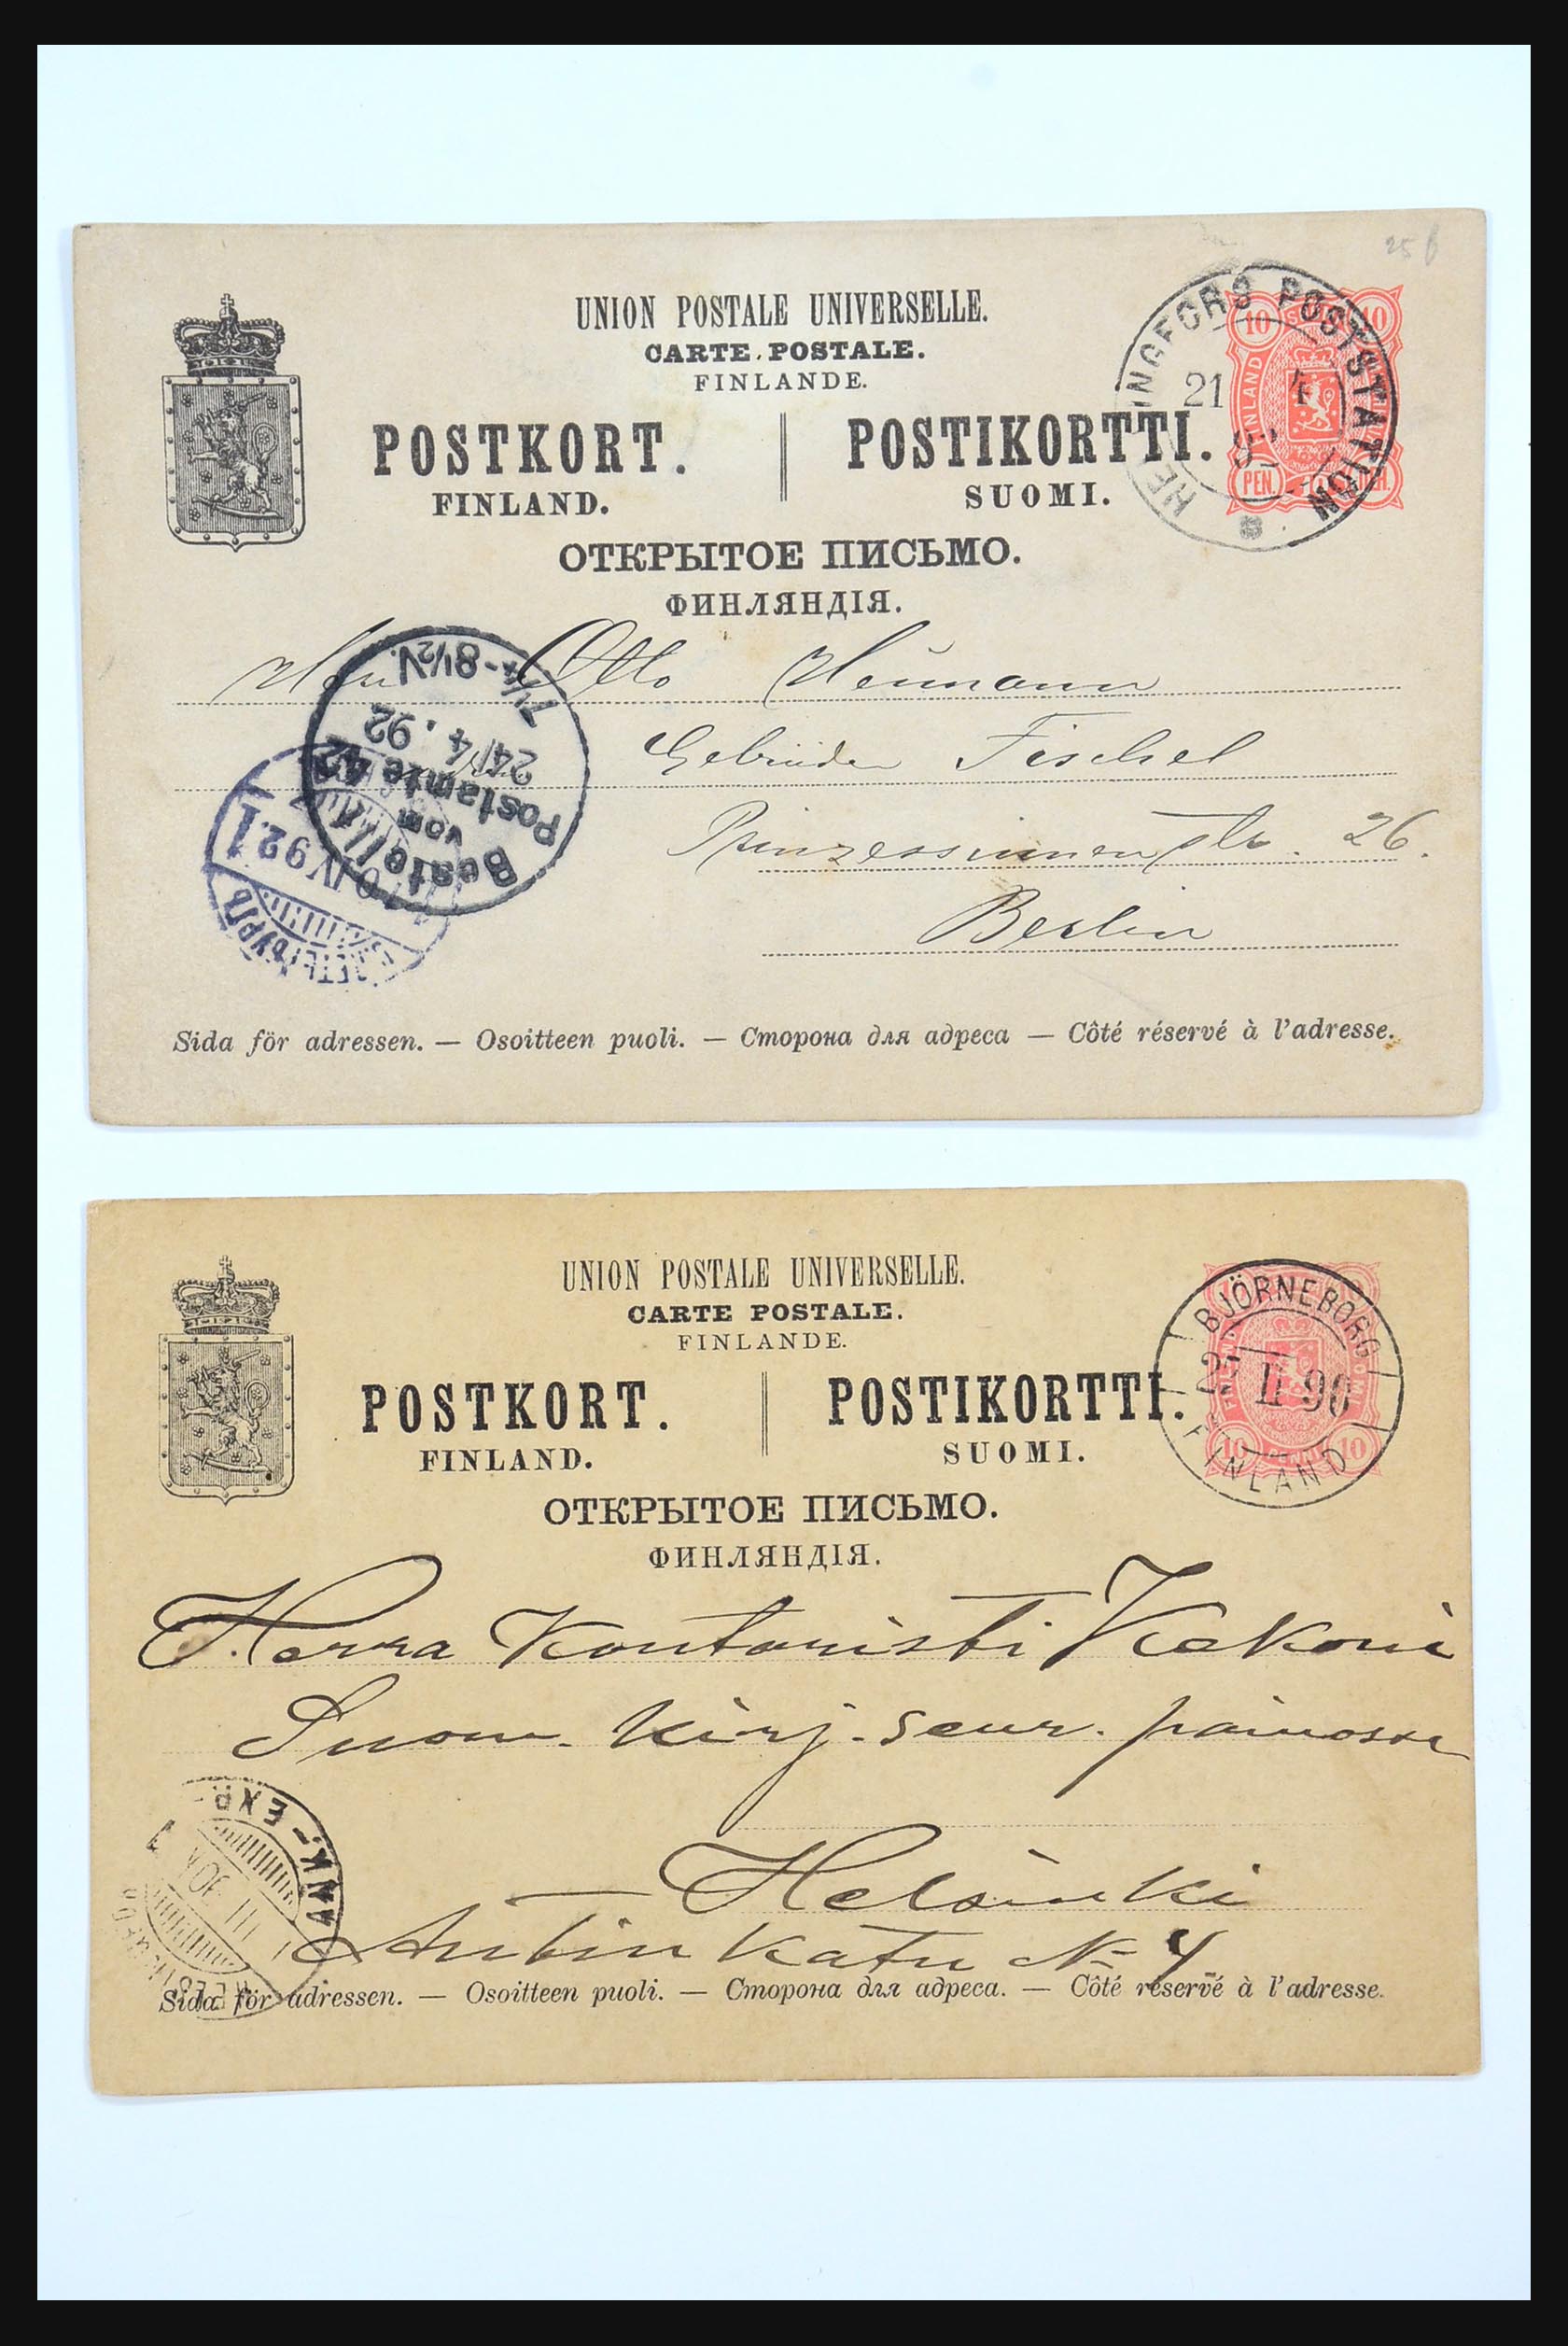 25 b
UNION POSTALE UNIVERSELLE.
CARTE POSTALE.
FINLANDE.
POSTKORT. POSTIKORTTI.
FINLAND. SUOMI.
ОТКРЫТОЕ ПИСЬМО.
ФИНЛЯНДІЯ.
HELSINGFORS POSTSTATION
21 4
92
10 10
FINLAND
PEN.
Otto Neumann
Gebrüder Fischel
Prinzessinnenstr. 26.
Berlin
Bestellt
vom
Postamte 42
24/4. 92
7¼-8½V.
IV 92.1
Sida för adressen. — Osoitteen puoli. — Сторона для адреса — Côté réservé à l'adresse.
UNION POSTALE UNIVERSELLE.
CARTE POSTALE.
FINLANDE.
POSTKORT. POSTIKORTTI.
FINLAND. SUOMI.
ОТКРЫТОЕ ПИСЬМО.
ФИНЛЯНДІЯ.
BJÖRNEBORG
II 90
FINLAND
10 10
Herra Kontoristi
Suom. Kirj. seur. painossa
Helsinki
Antinkatu № 4
ANK.-EXP.
Sida för adressen. — Osoitteen puoli. — Сторона для адреса. — Côté réservé à l'adresse.